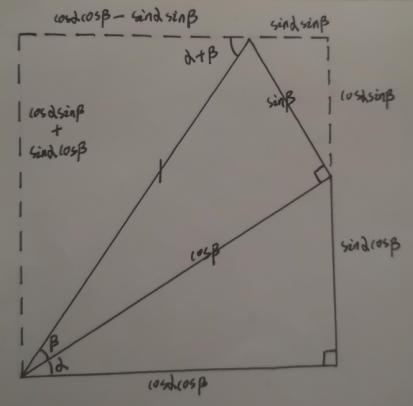 cosαcosβ − sinαsinβ
sinαsinβ
α+β
cosαsinβ
+
sinαcosβ
sinβ
cosαsinβ
1
cosβ
sinαcosβ
β
α
cosαcosβ